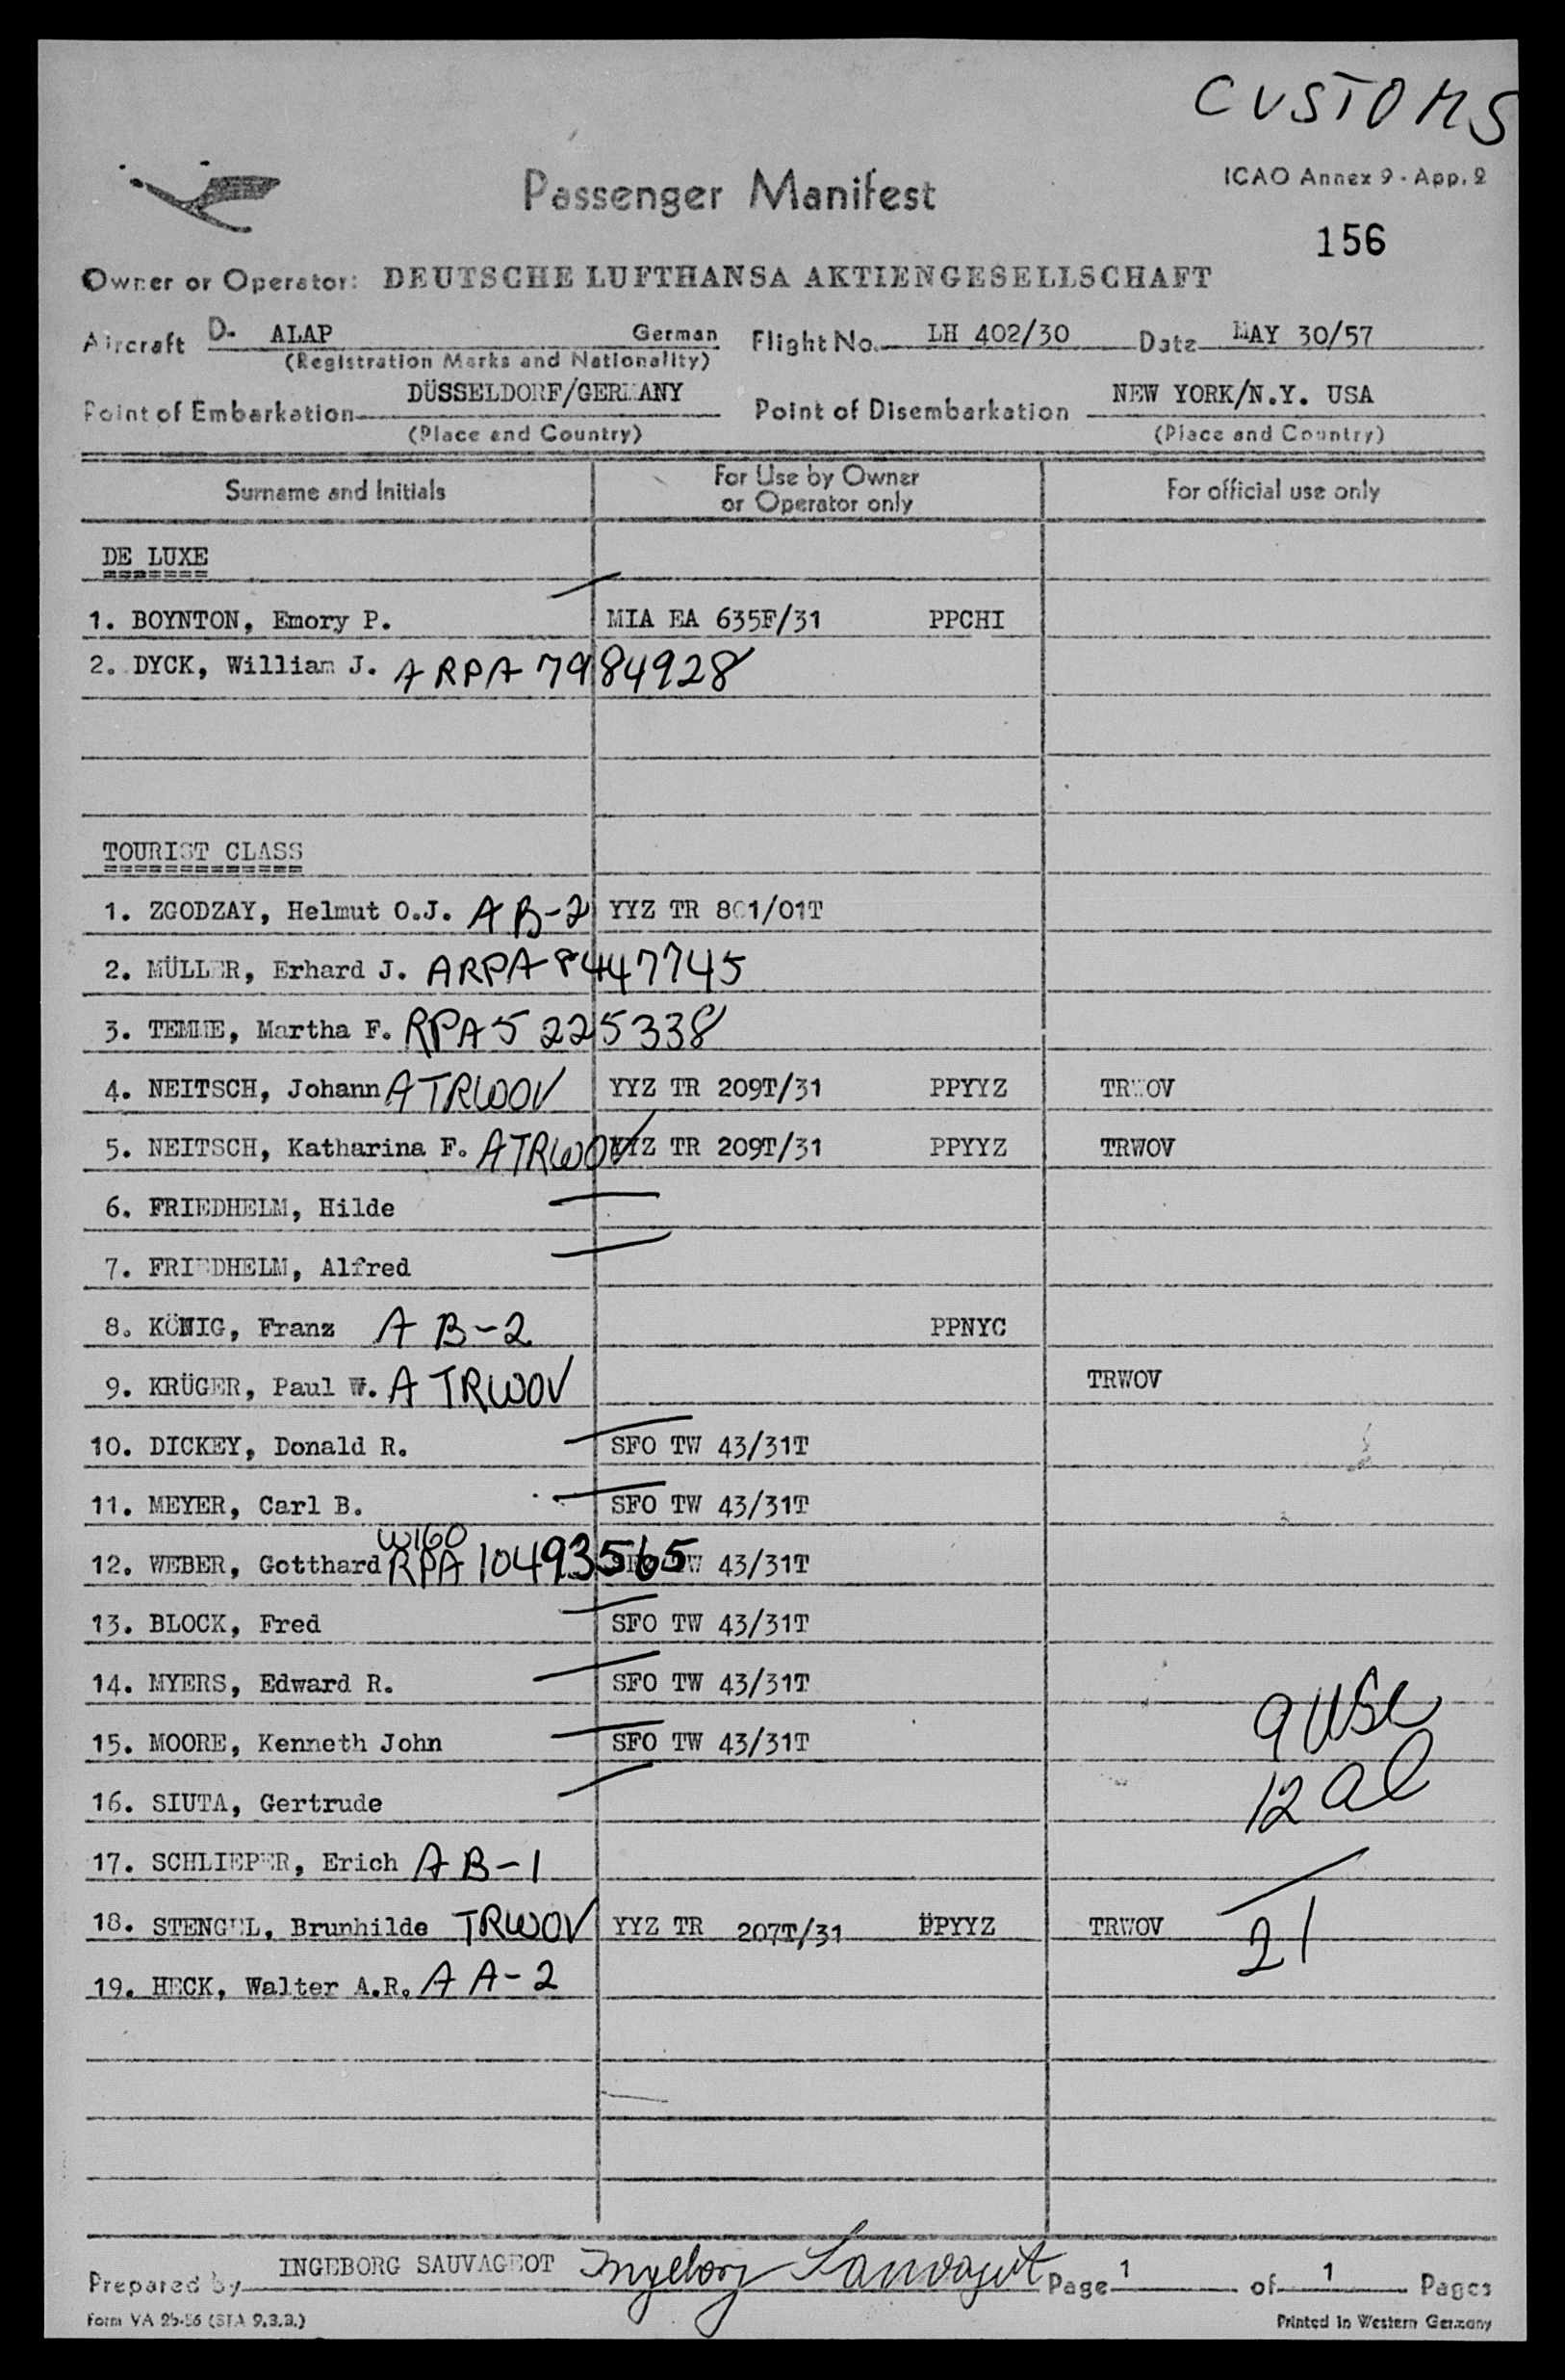 CUSTOMS
Passenger Manifest
ICAO Annex 9 - App. 2
156
Owner or Operator: DEUTSCHE LUFTHANSA AKTIENGESELLSCHAFT
Aircraft D- ALAP German Flight No. LH 402/30 Date MAY 30/57
(Registration Marks and Nationality)
Point of Embarkation DÜSSELDORF/GERMANY Point of Disembarkation NEW YORK/N.Y. USA
(Place and Country) (Place and Country)
Surname and Initials For Use by Owner or Operator only For official use only
DE LUXE
1. BOYNTON, Emory P. MIA EA 635F/31 PPCHI
2. DYCK, William J. A RPA 7984928
TOURIST CLASS
1. ZGODZAY, Helmut O.J. A B-2 YYZ TR 801/01T
2. MÜLLER, Erhard J. ARPA 8447745
3. TEMME, Martha F. RPA 5225338
4. NEITSCH, Johann A TRWOV YYZ TR 209T/31 PPYYZ TRWOV
5. NEITSCH, Katharina F. A TRWOV YYZ TR 209T/31 PPYYZ TRWOV
6. FRIEDHELM, Hilde
7. FRIEDHELM, Alfred
8. KÖNIG, Franz A B-2 PPNYC
9. KRÜGER, Paul W. A TRWOV TRWOV
10. DICKEY, Donald R. SFO TW 43/31T
11. MEYER, Carl B. SFO TW 43/31T
W160
12. WEBER, Gotthard RPA 10493565 SFO TW 43/31T
13. BLOCK, Fred SFO TW 43/31T
14. MYERS, Edward R. SFO TW 43/31T
9 USC
15. MOORE, Kenneth John SFO TW 43/31T
12 al
16. SIUTA, Gertrude
17. SCHLIEPER, Erich A B-1
18. STENGEL, Brunhilde TRWOV YYZ TR 207T/31 PPYYZ TRWOV
21
19. HECK, Walter A.R. A A-2
Prepared by INGEBORG SAUVAGEOT Ingeborg Sauvageot Page 1 of 1 Pages
Form VA 25-56 (STA 9.3.3.) Printed in Western Germany